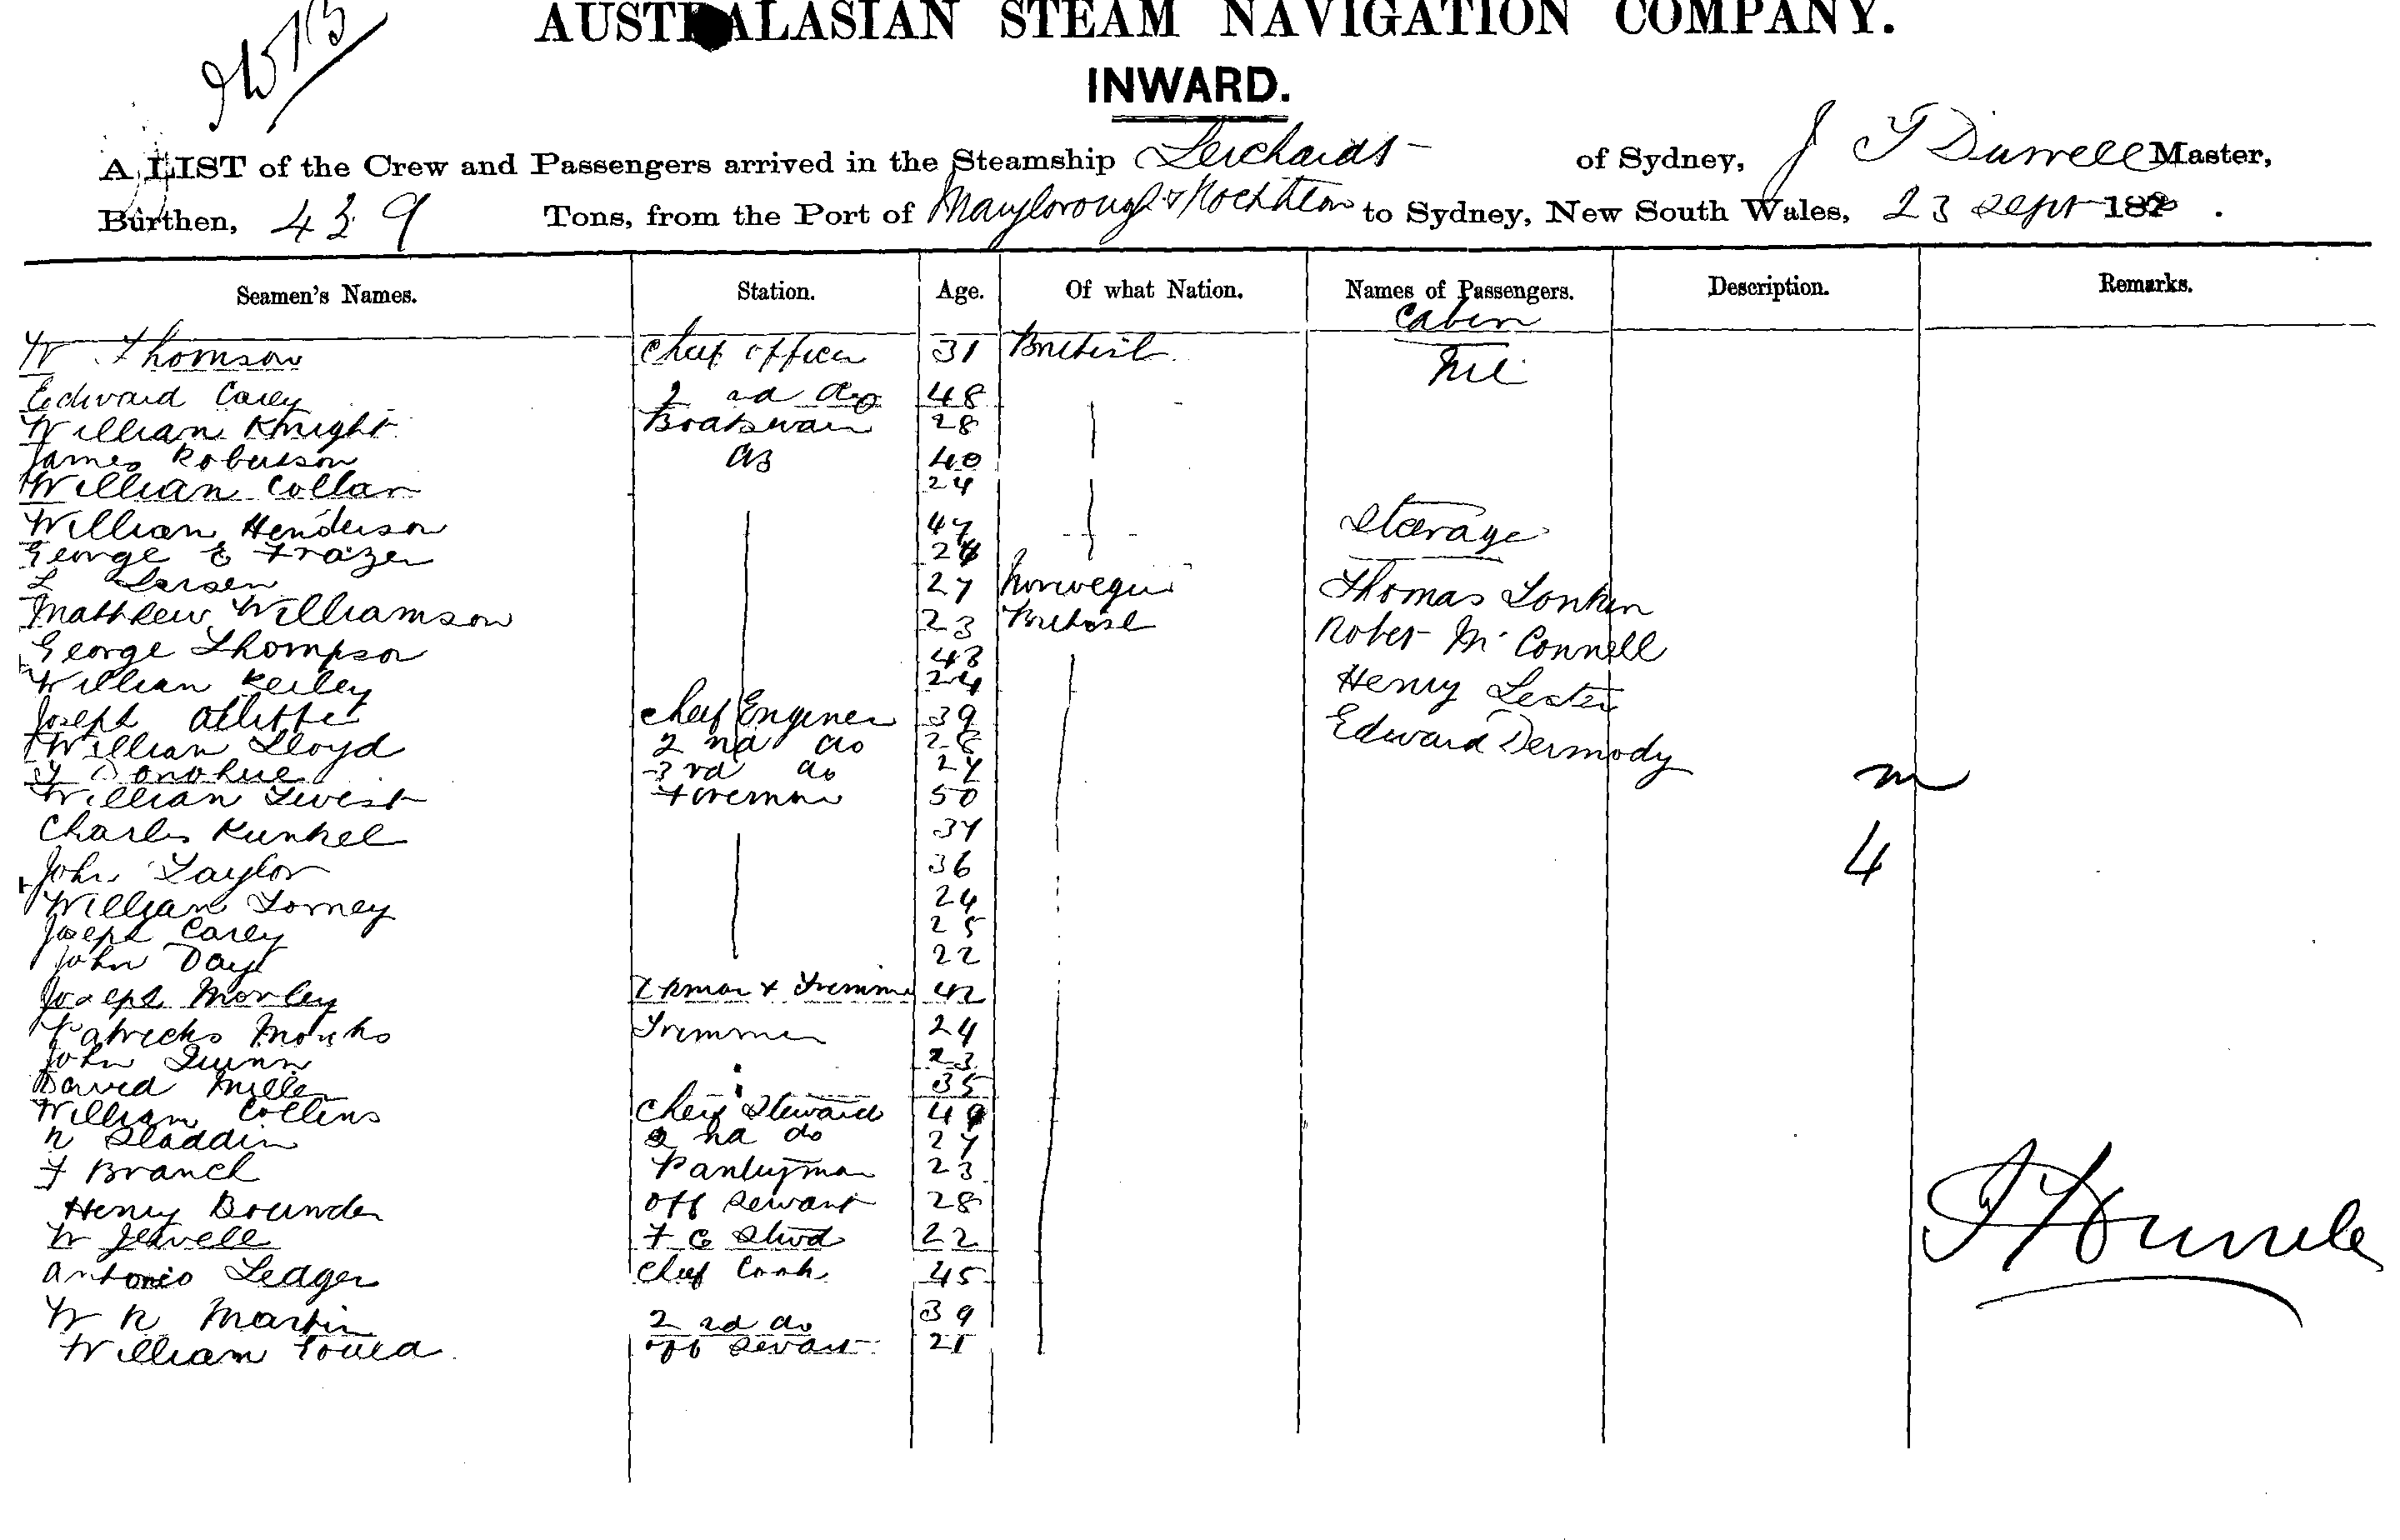 AUSTRALASIAN STEAM NAVIGATION COMPANY.
INWARD.
A LIST of the Crew and Passengers arrived in the Steamship Leichardt of Sydney, J T Durrell Master,
Burthen, 439 Tons, from the Port of Maryborough & Rockhton to Sydney, New South Wales, 23 Sept 188
Seamen's Names. Station. Age. Of what Nation. Names of Passengers. Description. Remarks.
Cabin
W Thomson Chief officer 31 British Nil
Edward Carey 2nd do 48
William Knight Boatswain 28
James Robertson AB 40
William Collan 24
William Henderson 47 Steerage
George E Frazer 24
L Larsen 27 Norwegian Thomas Lonken
Matthew Williamson 23 British Robert McConnell
George Thompson 43
William Keiley 24 Henry Lester
Joseph Chief Engineer 39 Edward Dermody
William Lloyd 2nd do 28
Donohue 3rd do 27 m
William Twist Fireman 50
Charles Kunkel 37
John Taylor 36 4
William Torney 24
Joseph Carey 25
John Day 22
Joseph Morley & Trimmer 42
Patricks Monks Trimmer 24
John Quinn 23
David Miller 35
William Collins Chief Steward 49
N Sladdin 2nd do 27
F Branch Pantryman 23
Henry Bounder Off Servant 28
W Jewell F C Stwd 22
Antonio Ledger Chief Cook 45
W R Martin 2nd do 39
William Gould off Servant 21